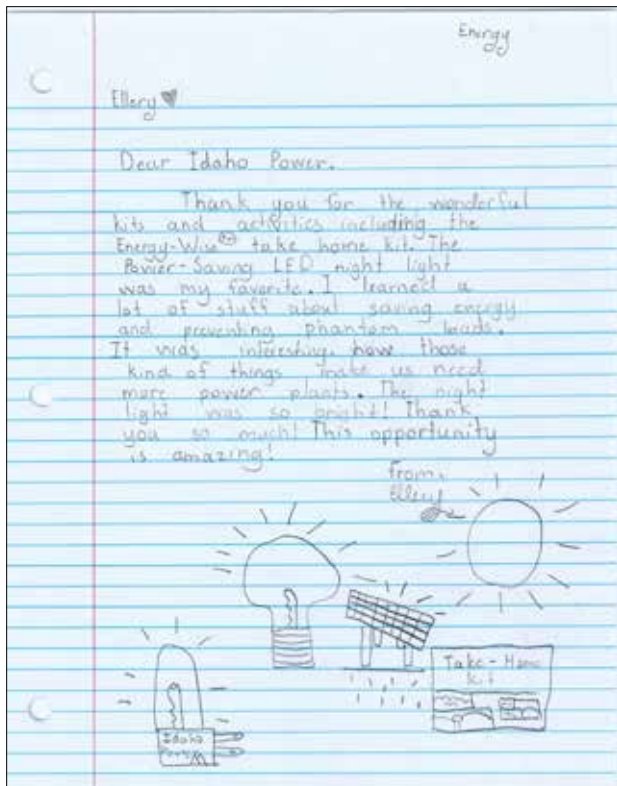 Energy
Ellery
Dear Idaho Power.
Thank you for the wonderful
kits and activities including the
Energy-Wise take home kit. The
Power-Saving LED night light
was my favorite. I learned a
lot of stuff about saving energy
and preventing phantom loads.
It was interesting how those
kind of things make us need
more power plants. The night
light was so bright! Thank
you so much! This opportunity
is amazing!
From,
Ellery
Take-Home
Kit
Idaho